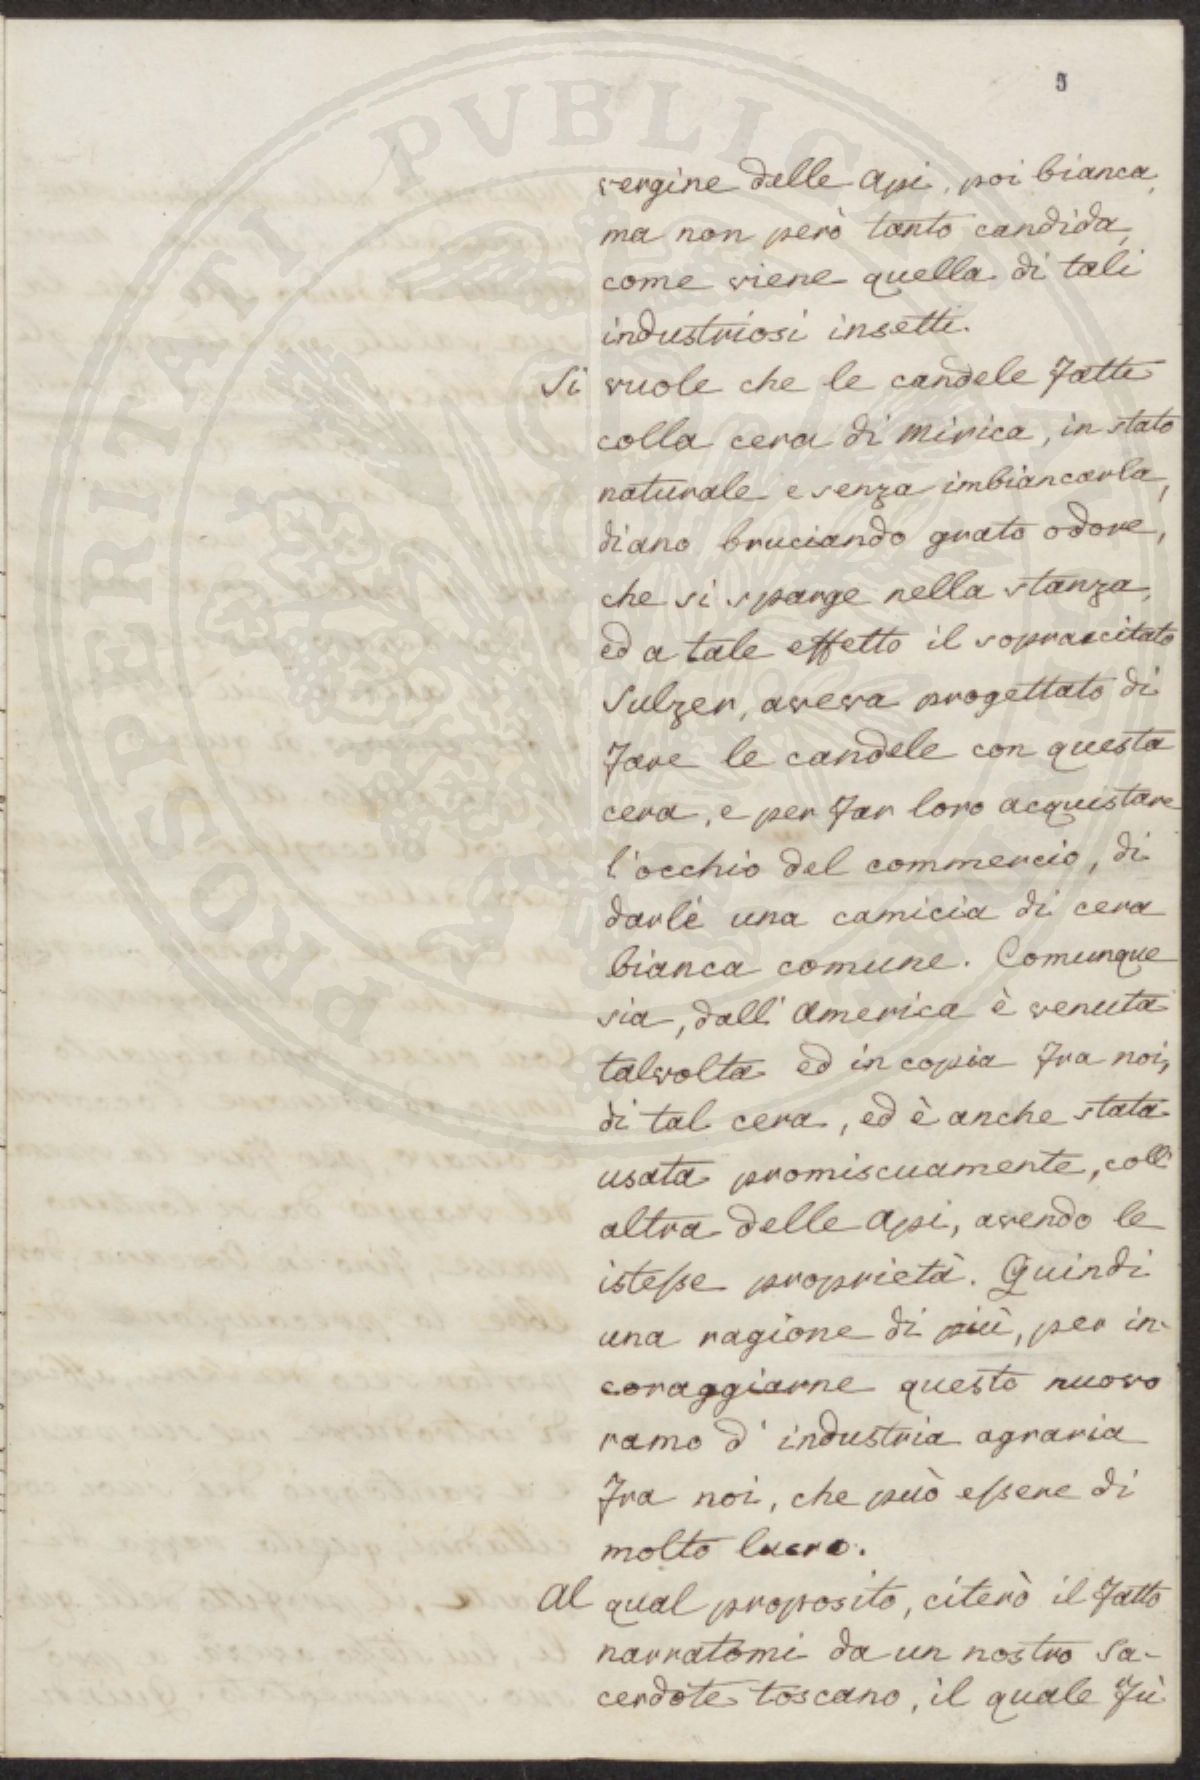 5
PROSPERITATI PVBLICAE
vergine delle Api, poi bianca,
ma non però tanto candida,
come viene quella di tali
industriosi insetti.
Si vuole che le candele fatte
colla cera di mirica, in stato
naturale e senza imbiancarla,
diano bruciando grato odore,
che si sparge nella stanza,
ed a tale effetto il sopraccitato
Sulzer, aveva progettato di
fare le candele con questa
cera, e per far loro acquistare
l'occhio del commercio, di
darle una camicia di cera
bianca comune. Comunque
sia, dall' America è venuta
talvolta ed in copia fra noi,
di tal cera, ed è anche stata
usata promiscuamente, coll'
altra delle Api, avendo le
istesse proprietà. Quindi
una ragione di più, per in-
coraggiarne questo nuovo
ramo d' industria agraria
fra noi, che può essere di
molto lucro.
Al qual proposito, citerò il fatto
narratomi da un nostro Sa-
cerdote toscano, il quale fù